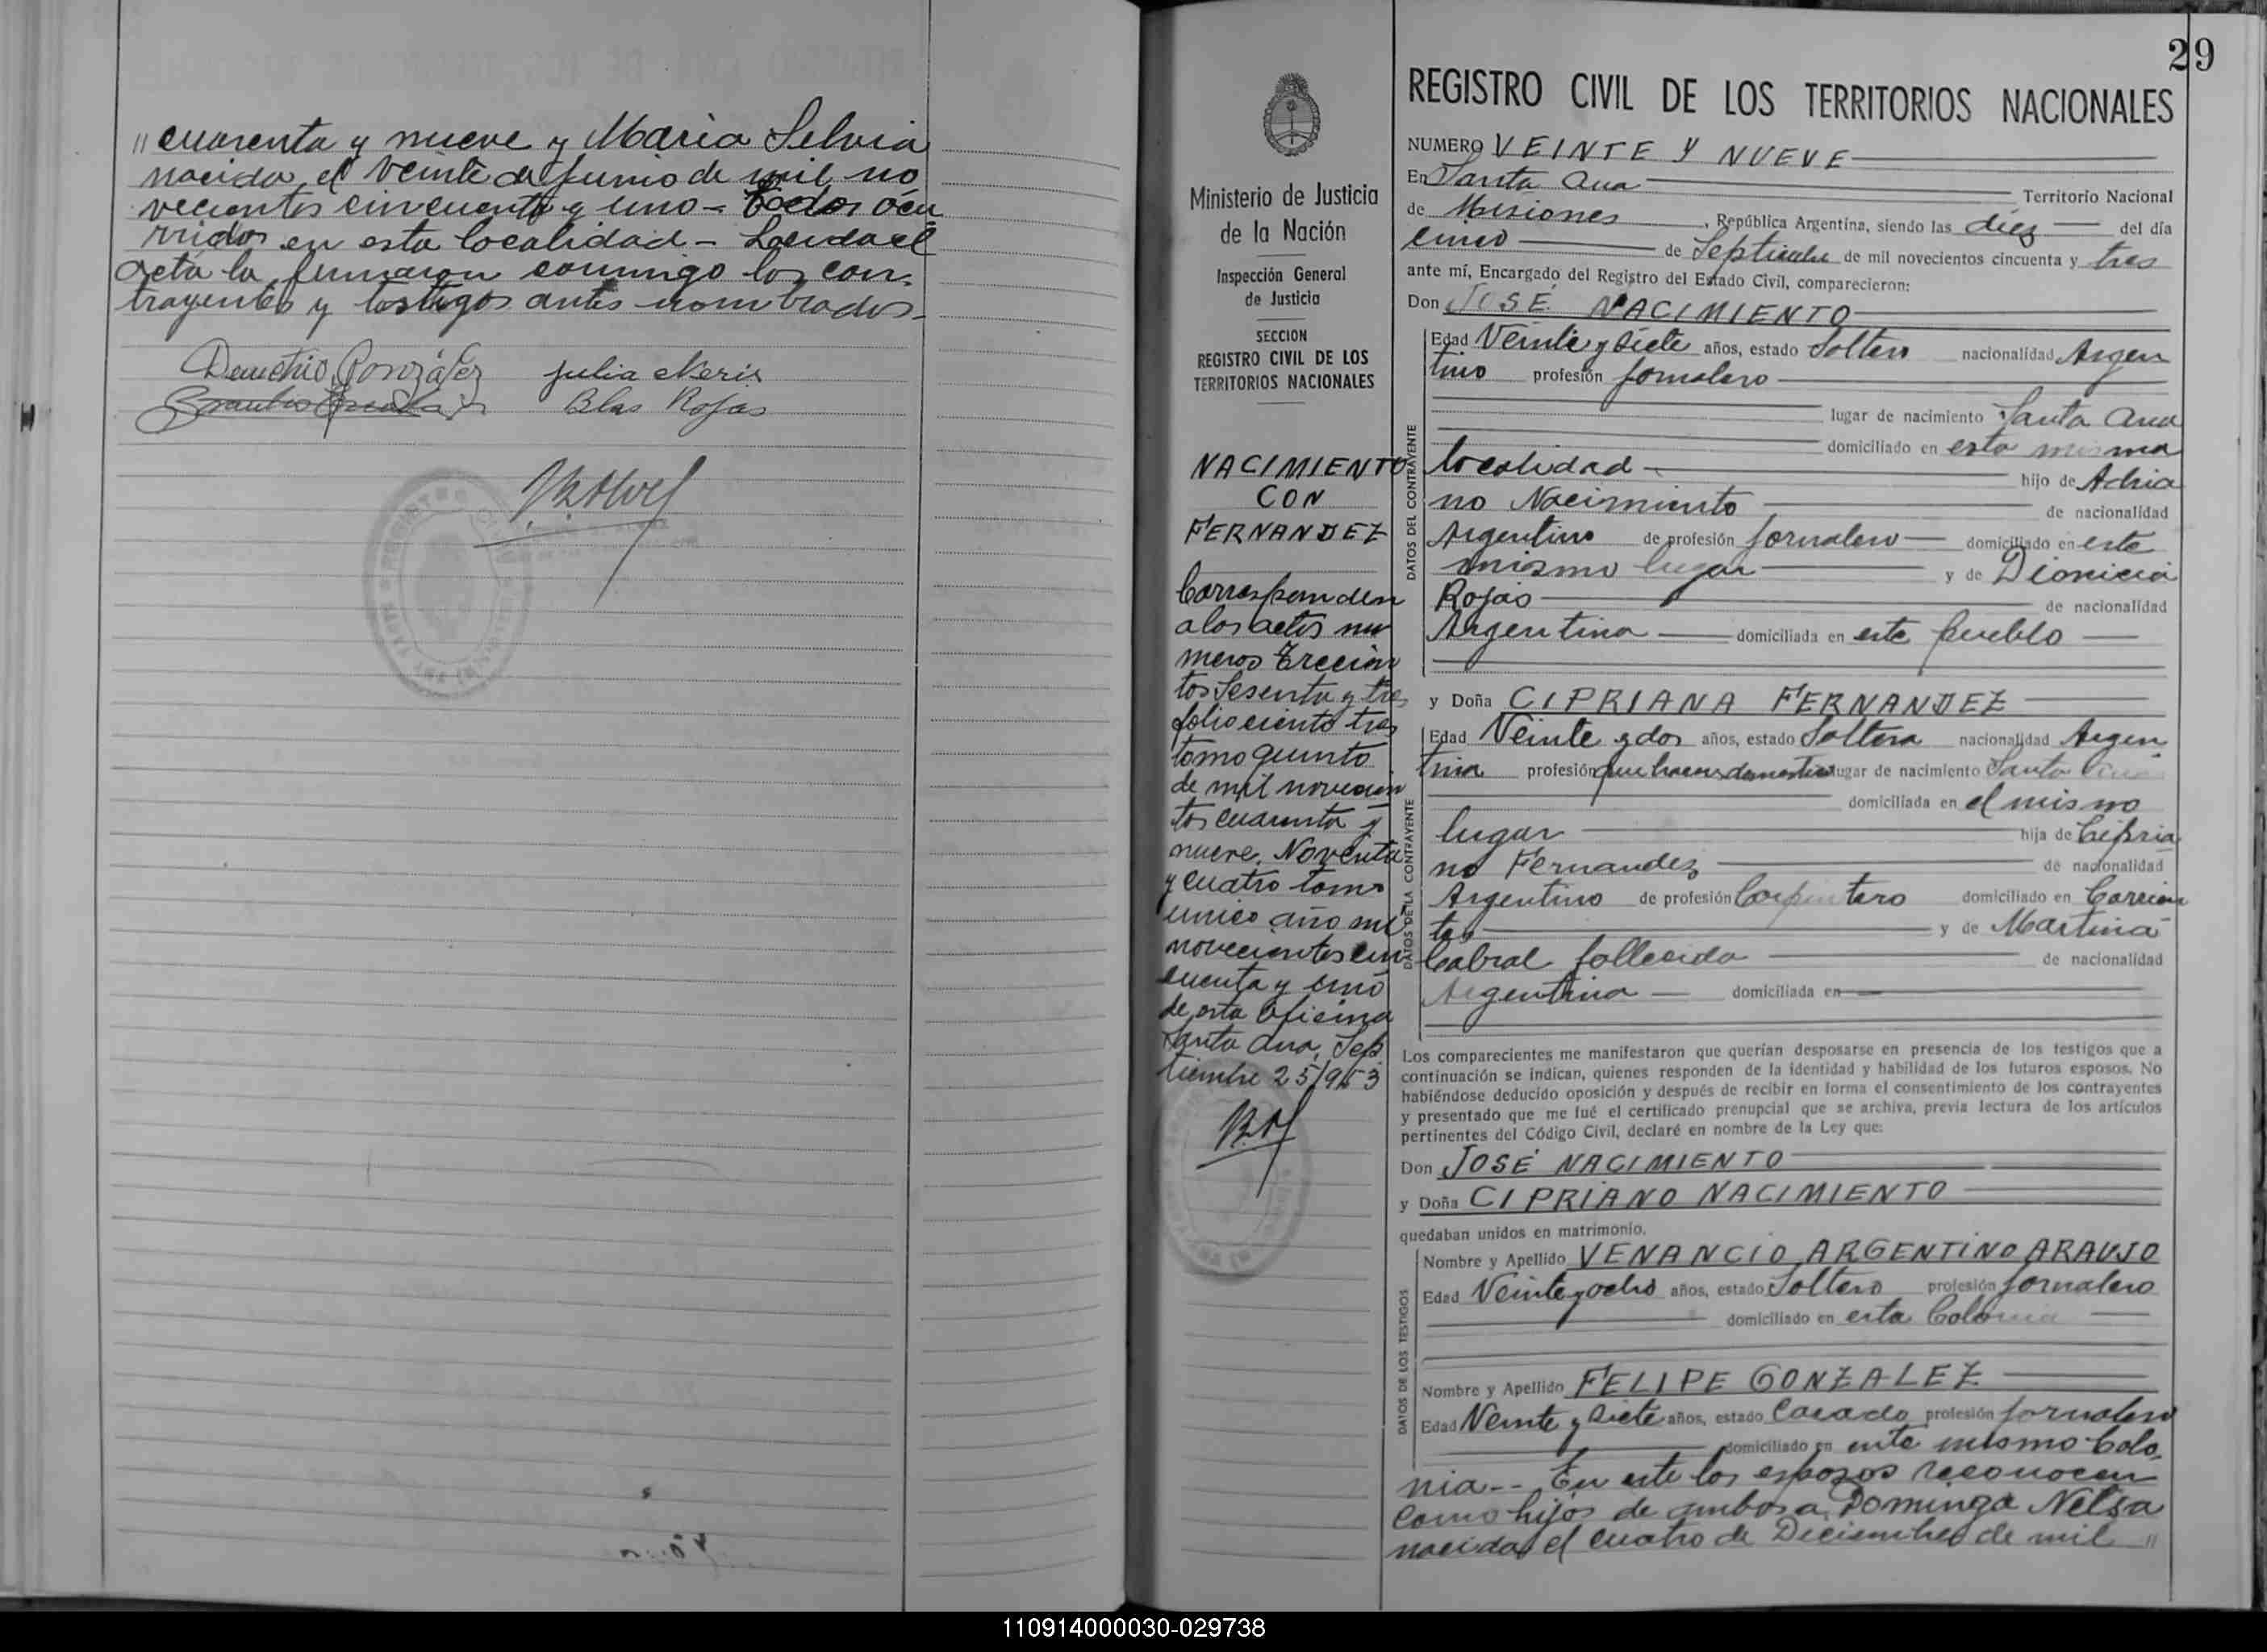 " cuarenta y nueve y Maria Selvia
nacida el veinte de Junio de mil no
vecientos cincuenta y uno - Todos ocu
rridos en esta localidad - Leida el
acta la firmaron conmigo los con-
trayentes y testigos antes nombrados -
Demetrio González Julia Neris
Blas Rojas
29
REGISTRO CIVIL DE LOS TERRITORIOS NACIONALES
Ministerio de Justicia
de la Nación
Inspección General
de Justicia
SECCION
REGISTRO CIVIL DE LOS
TERRITORIOS NACIONALES
NACIMIENTO
CON
FERNANDEZ
Corresponden
a los actos nu
meros Trecien
tos Sesenta y tres
folio ciento tres
tomo quinto
de mil novecien
tos cuarenta y
nueve. Noventa
y cuatro tomo
unico año mil
novecientos cin
cuenta y uno
de esta Oficina
Santa Ana, Sep
tiembre 25/953
NUMERO VEINTE Y NUEVE
En Santa Ana Territorio Nacional
de Misiones, República Argentina, siendo las diez del día
cinco de Septiembre de mil novecientos cincuenta y tres
ante mí, Encargado del Registro del Estado Civil, comparecieron:
Don JOSÉ NACIMIENTO
DATOS DEL CONTRAYENTE
Edad Veinte y siete años, estado Soltero nacionalidad Argen
tino profesión Jornalero
lugar de nacimiento Santa Ana
domiciliado en esta misma
localidad - hijo de Adria
no Nacimiento de nacionalidad
Argentino de profesión Jornalero domiciliado en este
mismo lugar y de Dionicia
Rojas de nacionalidad
Argentina domiciliada en este pueblo
y Doña CIPRIANA FERNANDEZ
DATOS DE LA CONTRAYENTE
Edad Veinte y dos años, estado Soltera nacionalidad Argen
tina profesión que haceres domesticos lugar de nacimiento Santa Ana
domiciliada en el mismo
lugar hija de Cipria
no Fernandez de nacionalidad
Argentino de profesión Carpintero domiciliado en Corrien
tes y de Martina
Cabral fallecida de nacionalidad
Argentina domiciliada en
Los comparecientes me manifestaron que querían desposarse en presencia de los testigos que a
continuación se indican, quienes responden de la identidad y habilidad de los futuros esposos. No
habiéndose deducido oposición y después de recibir en forma el consentimiento de los contrayentes
y presentado que me fué el certificado prenupcial que se archiva, previa lectura de los artículos
pertinentes del Código Civil, declaré en nombre de la Ley que:
Don JOSÉ NACIMIENTO
y Doña CIPRIANO NACIMIENTO
quedaban unidos en matrimonio.
DATOS DE LOS TESTIGOS
Nombre y Apellido VENANCIO ARGENTINO ARAUJO
Edad Veinte y ocho años, estado Soltero profesión Jornalero
domiciliado en esta Colonia
Nombre y Apellido FELIPE GONZALEZ
Edad Veinte y siete años, estado Casado profesión Jornalero
domiciliado en este mismo Colo
nia - - En este los esposos reconocen
como hijos de ambos a Dominga Nelsa
nacida el cuatro de Diciembre de mil "
110914000030-029738